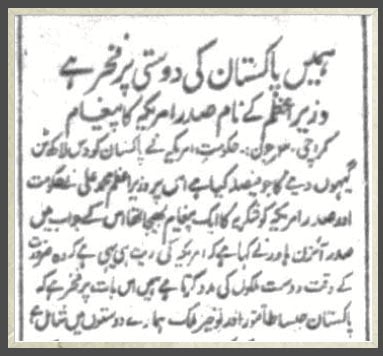 ہمیں پاکستان کی دوستی پر فخر ہے
وزیر اعظم کے نام صدر امریکہ کا پیغام
کراچی، جون:۔ حکومت امریکہ نے پاکستان کو دس لاکھ ٹن
گیہوں دینے کا جو فیصلہ کیا ہے اس پر وزیر اعظم محمد علی نے حکومت
اور صدر امریکہ کو شکریے کا ایک پیغام بھیجا تھا اس کے جواب میں
صدر آئزن ہاور نے کہا ہے کہ امریکہ کی ریت یہی ہے کہ وہ ضرورت
کے وقت دوست ملکوں کی مدد کرتا ہے ہمیں اس بات پر فخر ہے کہ
پاکستان جیسا طاقتور اور نوخیز ملک ہمارے دوستوں میں شامل ہے